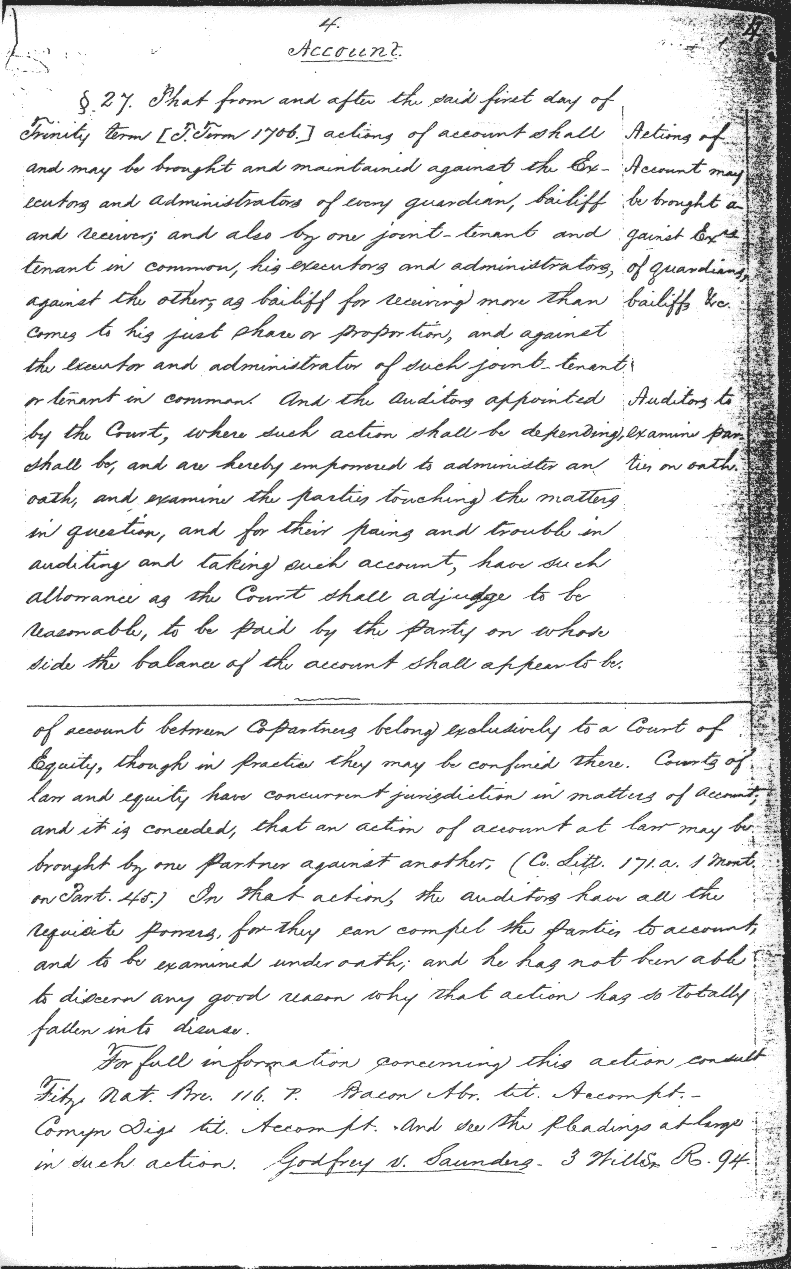 4.
4
Account.
§ 27. That from and after the said first day of
Trinity term [T. Term 1706.] actions of account shall
and may be brought and maintained against the Ex-
ecutors and administrators of every guardian, bailiff
and receiver; and also by one joint-tenant and
tenant in common, his executors and administrators,
against the other; as bailiff for receiving more than
comes to his just share or proportion, and against
the executor and administrator of such joint-tenant
or tenant in common. And the auditors appointed
by the Court, where such action shall be depending,
shall be, and are hereby empowered to administer an
oath, and examine the parties touching the matters
in question, and for their pains and trouble in
auditing and taking such account, have such
allowance as the Court shall adjudge to be
reasonable, to be paid by the party on whose
side the balance of the account shall appear to be.
Actions of
Account may
be brought a-
gainst Exrs
of guardians,
bailiffs &c.
Auditors to
examine par-
ties on oath.
of account between Copartners belong exclusively to a Court of
Equity, though in practice they may be confined there. Courts of
law and equity have concurrent jurisdiction in matters of account;
and it is conceded, that an action of account at law may be
brought by one partner against another, (Co. Litt. 171.a. 1 Mont.
on Part. 45.) In that action, the auditors have all the
requisite powers, for they can compel the parties to account,
and to be examined under oath; and he has not been able
to discern any good reason why that action has so totally
fallen into disuse.
For full information concerning this action consult
Fitz. Nat. Bre. 116. P. Bacon Abr. tit. Accompt.-
Comyn Digs tit. Accompt. And see the pleadings at large
in such action. Godfrey v. Saunders. 3 Wilson R. 94.